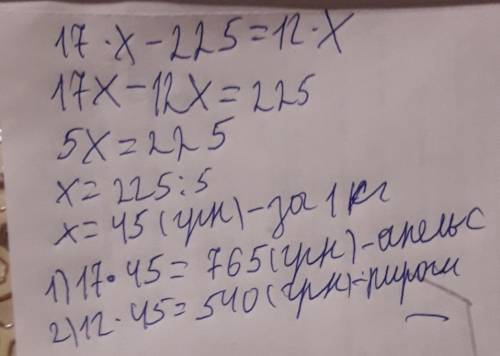 17·x-225=12·x
17x-12x=225
5x=225
x=225:5
x=45(грн)-за 1 кг
1)17·45=765(грн)-апельс
2)12·45=540(грн)-пироги